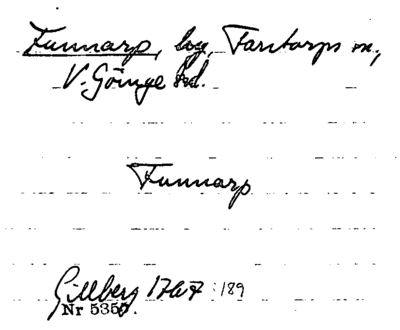 Funnarp, by, Farstorps sn,
V. Göinge hd.
Funnarp
Gillberg 1767 : 189
Nr 5350.